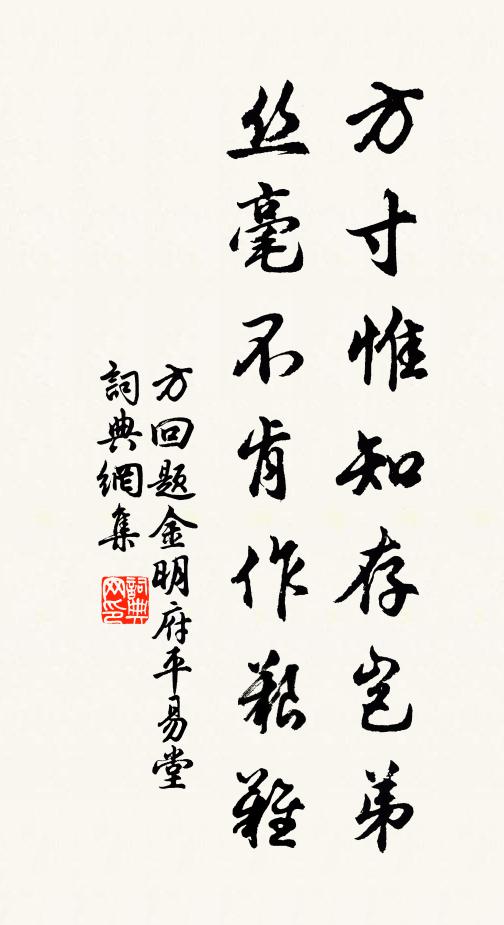 方寸惟知存岂弟
丝毫不肯作艰难
方回题金明府平易堂
詞典網集
詞典网印